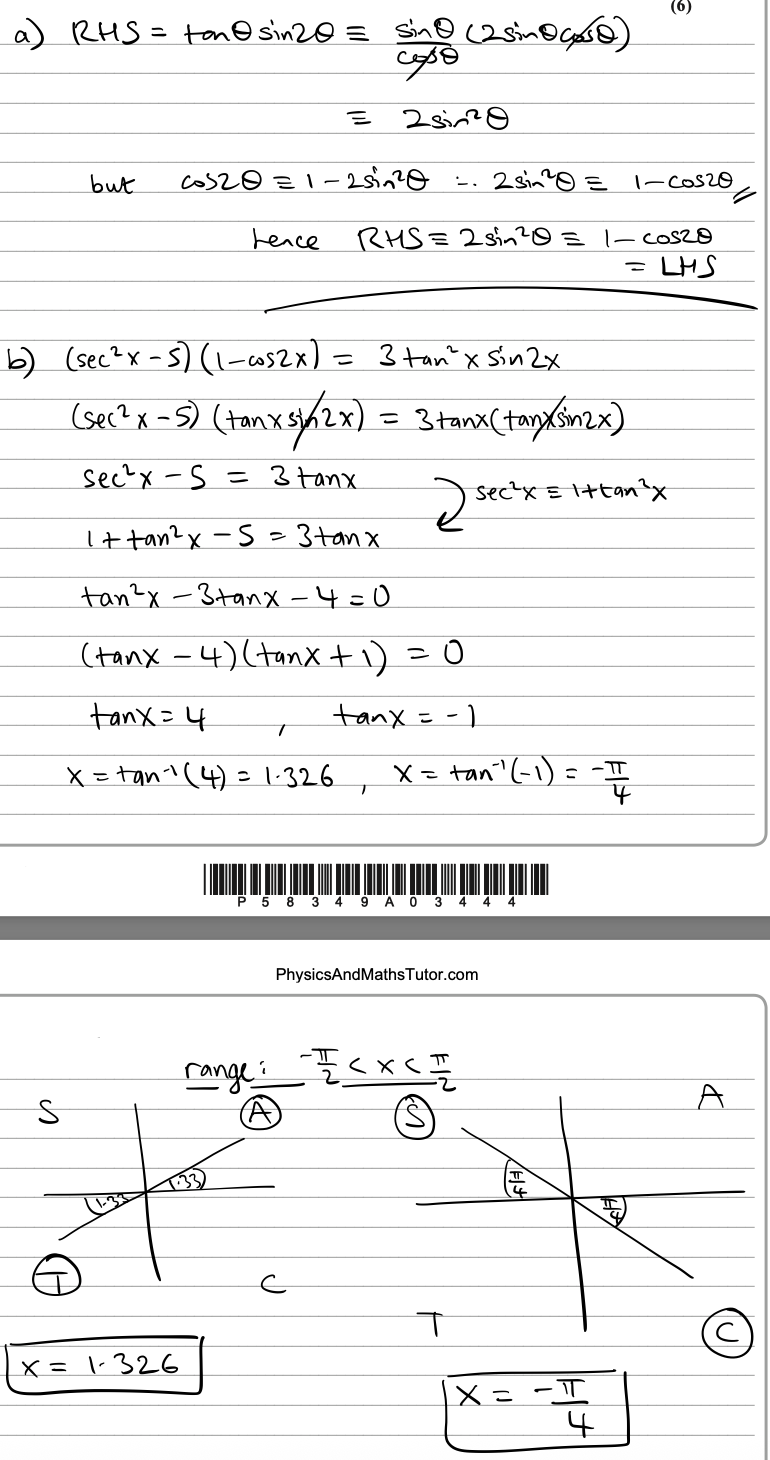 (6)
a) RHS = tanθ sin2θ ≡ sinθ/cosθ (2sinθcosθ)
≡ 2sin²θ
but cos2θ ≡ 1 - 2sin²θ ∴ 2sin²θ ≡ 1 - cos2θ
hence RHS ≡ 2sin²θ ≡ 1 - cos2θ
= LHS
b) (sec²x - 5)(1 - cos2x) = 3tan²x sin2x
(sec²x - 5)(tanx sin2x) = 3tanx(tanx sin2x)
sec²x - 5 = 3tanx
sec²x ≡ 1 + tan²x
1 + tan²x - 5 = 3tanx
tan²x - 3tanx - 4 = 0
(tanx - 4)(tanx + 1) = 0
tanx = 4 , tanx = -1
x = tan⁻¹(4) = 1.326 , x = tan⁻¹(-1) = -π/4
P 5 8 3 4 9 A 0 3 4 4 4
PhysicsAndMathsTutor.com
range: -π/2 < x < π/2
S A S A
1.33 1.33 π/4 π/4
T C T C
x = 1.326
x = -π/4